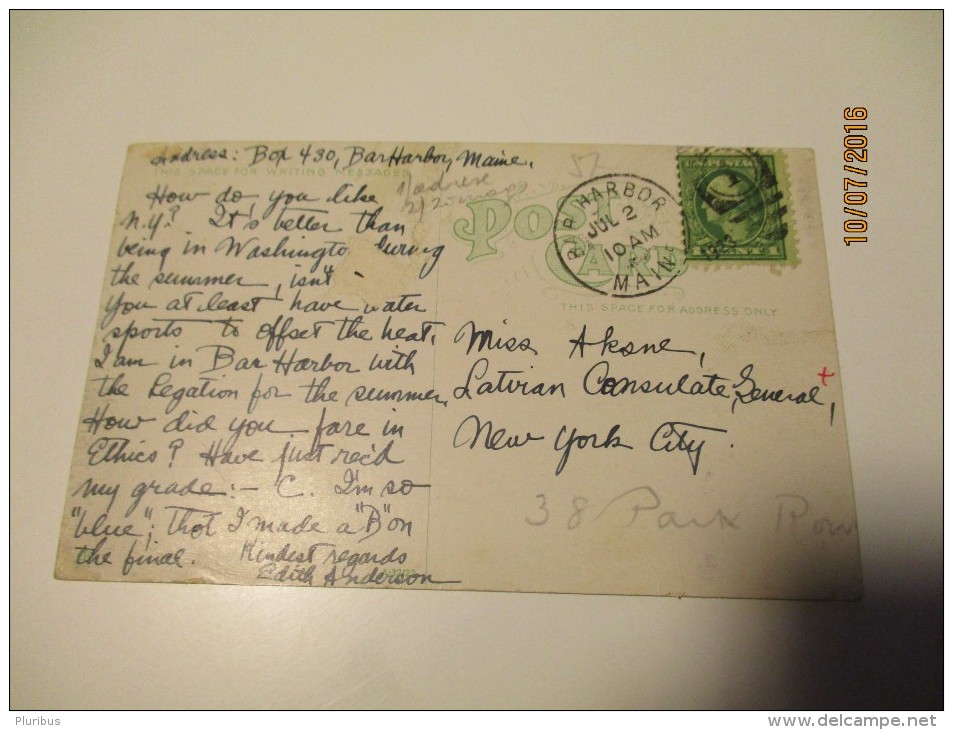 Address: Box 430, Bar Harbor, Maine.
THIS SPACE FOR WRITING MESSAGES
How do you like
N.Y.? It's better than
being in Washington during
the summer, isn't
You at least have water
sports to offset the heat.
I am in Bar Harbor with
the Legation for the summer.
How did you fare in
Ethics? Have just rec'd
my grade:- "C". I'm so
"blue"; thot I made a "B" on
the final. Kindest regards
Edith Anderson
POST
CARD
BAR HARBOR
JUL 2
10 AM
MAIN
1923
THIS SPACE FOR ADDRESS ONLY
Miss Aksne,
Latvian Consulate General,
New York City.
38 Park Row
10/07/2016
Pluribus
www.delcampe.net